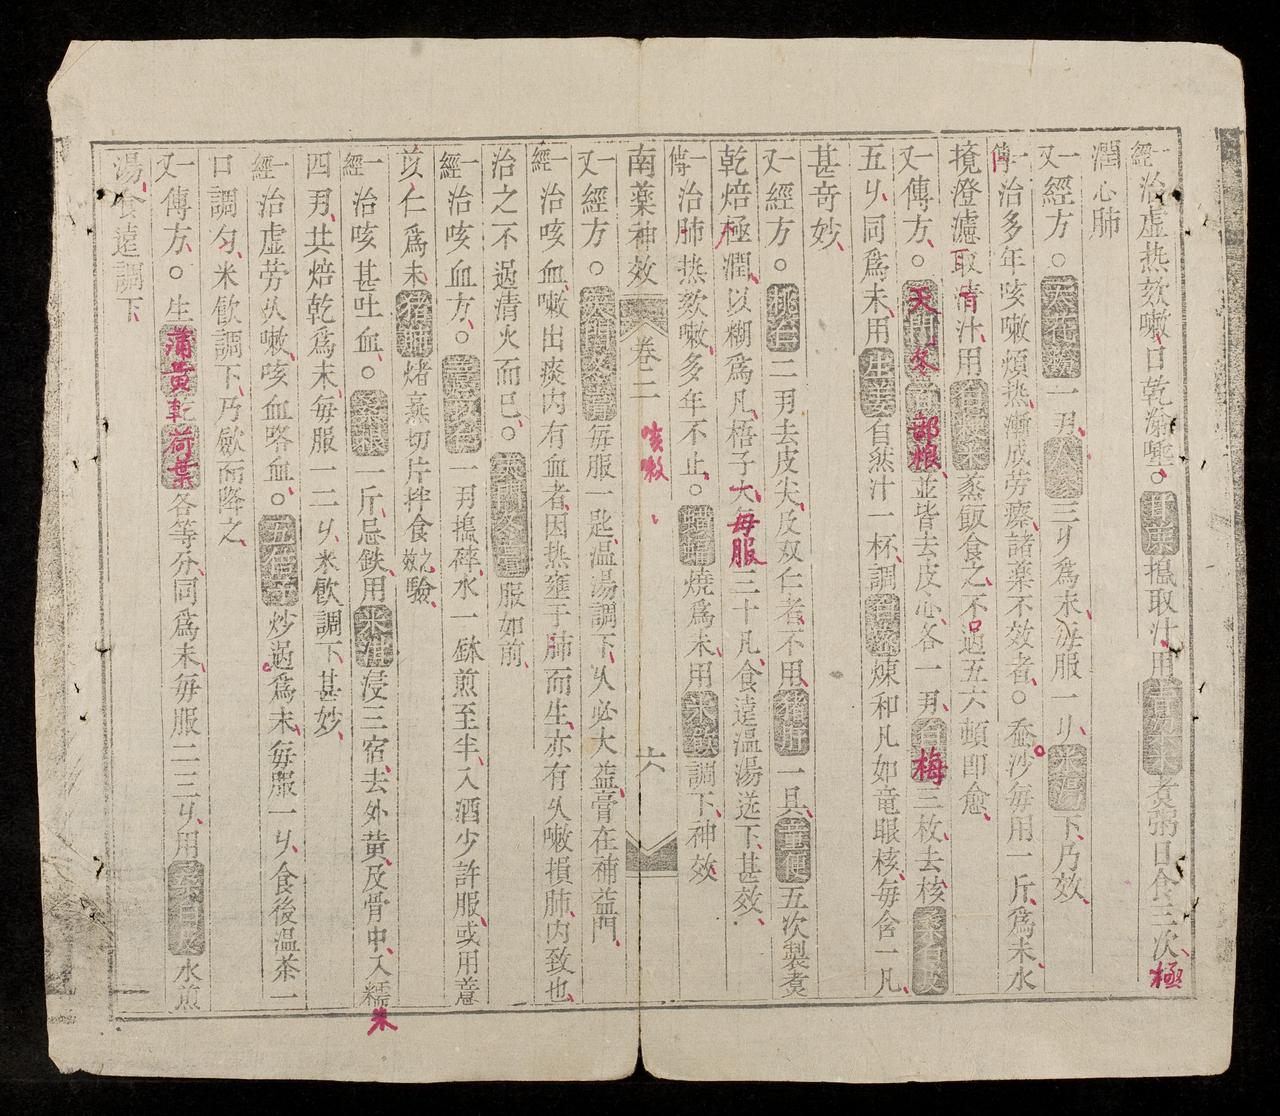 一經治虛热欬嗽口乾涕唾。甘蔗搗取汁用青粱米煮粥日食三次極
潤心肺
一又經方。天花粉一刄人參三丩爲末每服一丩米湯下乃效
一傳治多年咳嗽煩热漸成劳瘵諸薬不效者。蚕沙每用一斤爲末水
攪澄濾取清汁用 米蒸飯食之不過五六頓即愈
一又傳方。天門冬百部根並皆去皮心各一刄白梅三枚去核桑白皮
五丩同爲末用生姜自然汁一杯調白蜜煉和凡如竜眼核每含一凡
甚奇妙
一又經方。桃仁二刄去皮尖及双仁者不用猪肝一具童便五次製煮
乾焙極潤以糊爲凡梧子大每服三十凡食遠温湯送下甚效
一傳治肺热欬嗽多年不止。 燒爲末用米飲調下神效
南薬神效 卷二 咳嗽 六
一又經方。天門冬膏每服一匙温湯調下久必大益膏在補益門
一經治咳血嗽出痰内有血者因热壅于肺而生亦有久嗽損肺内致也
治之不過清火而已。天門冬膏服如前
一經治咳血方。薏苡仁一刄搗碎水一鉢煎至半入酒少許服或用薏
苡仁爲末猪肺煑熹切片拌食之效驗
一經治咳甚吐血。桑根一斤忌鉄用米泔浸三宿去外黄及骨中入糯米
四刄共焙乾爲末每服一二丩米飲調下甚妙
一經治虛劳久嗽咳血咯血。五倍子炒過爲末每服一丩食後温茶一
口調匀米飲調下乃歛而降之
一又傳方。生蒲黄乾荷葉各等分同爲末每服二三丩用桑白皮水煎
湯食遠調下